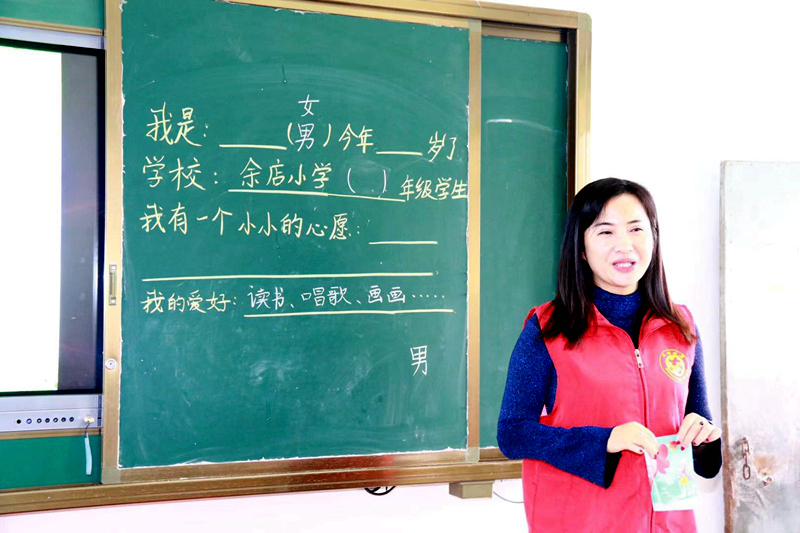 女
我是：____(男)今年____岁了
学校：余店小学（ ）年级学生
我有一个小小的心愿：____
____
我的爱好：读书、唱歌、画画……
男